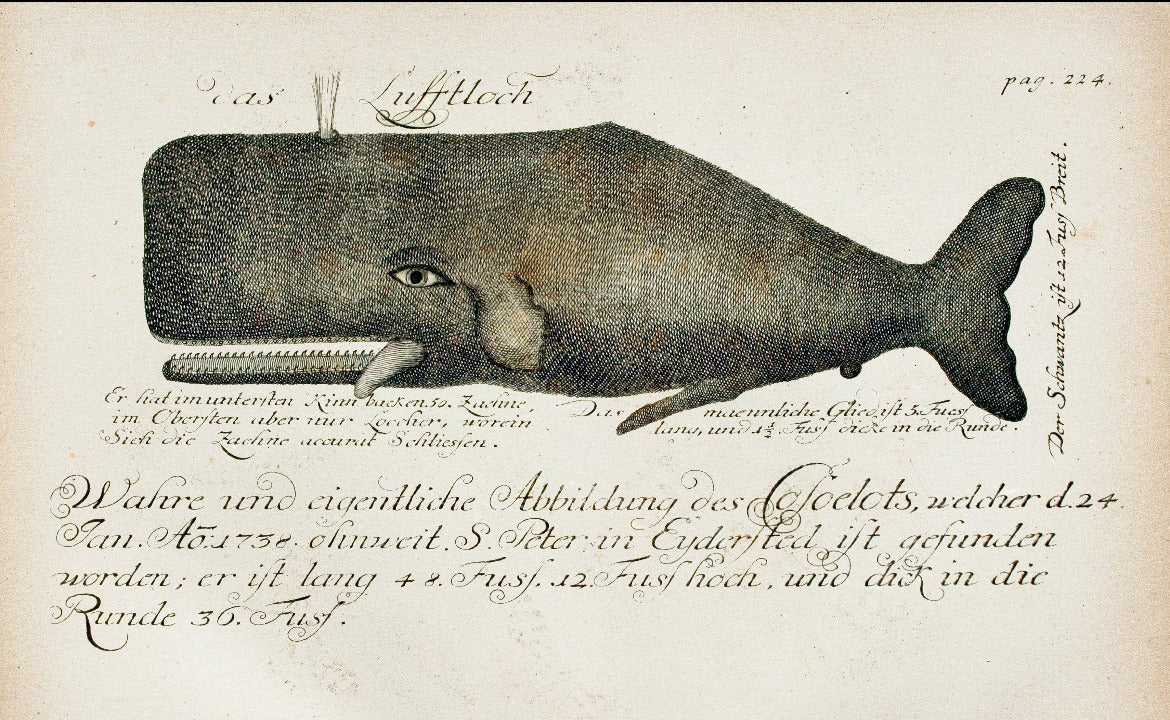 pag. 224.
das Lufftloch
Der Schwantz ist 12 Fusf Breit.
Er hat im untersten Kinn backen 50. Zaehne,
im Obersten aber nur Loecher, worein
Sich die Zaehne accurat Schliessen.
Das maennliche Glied ist 3. Fuesf
lang, und 1½. Fusf dicke in die Runde.
Wahre und eigentliche Abbildung des Cassoelots, welcher d. 24.
Jan. Aō. 1738. ohnweit. S. Peter in Eydersted ist gefunden
worden; er ist lang 48. Fusf. 12. Fusf hoch, und dick in die
Runde 36. Fusf.